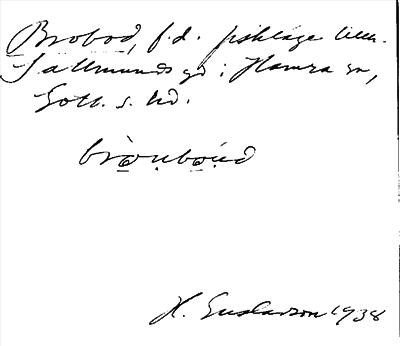 Brobod, f.d. fiskläge till
Sallmunds gd i Hamra sn,
Gotl. s. hd.
bròu̯bòu̯d
H. Gustavson 1938